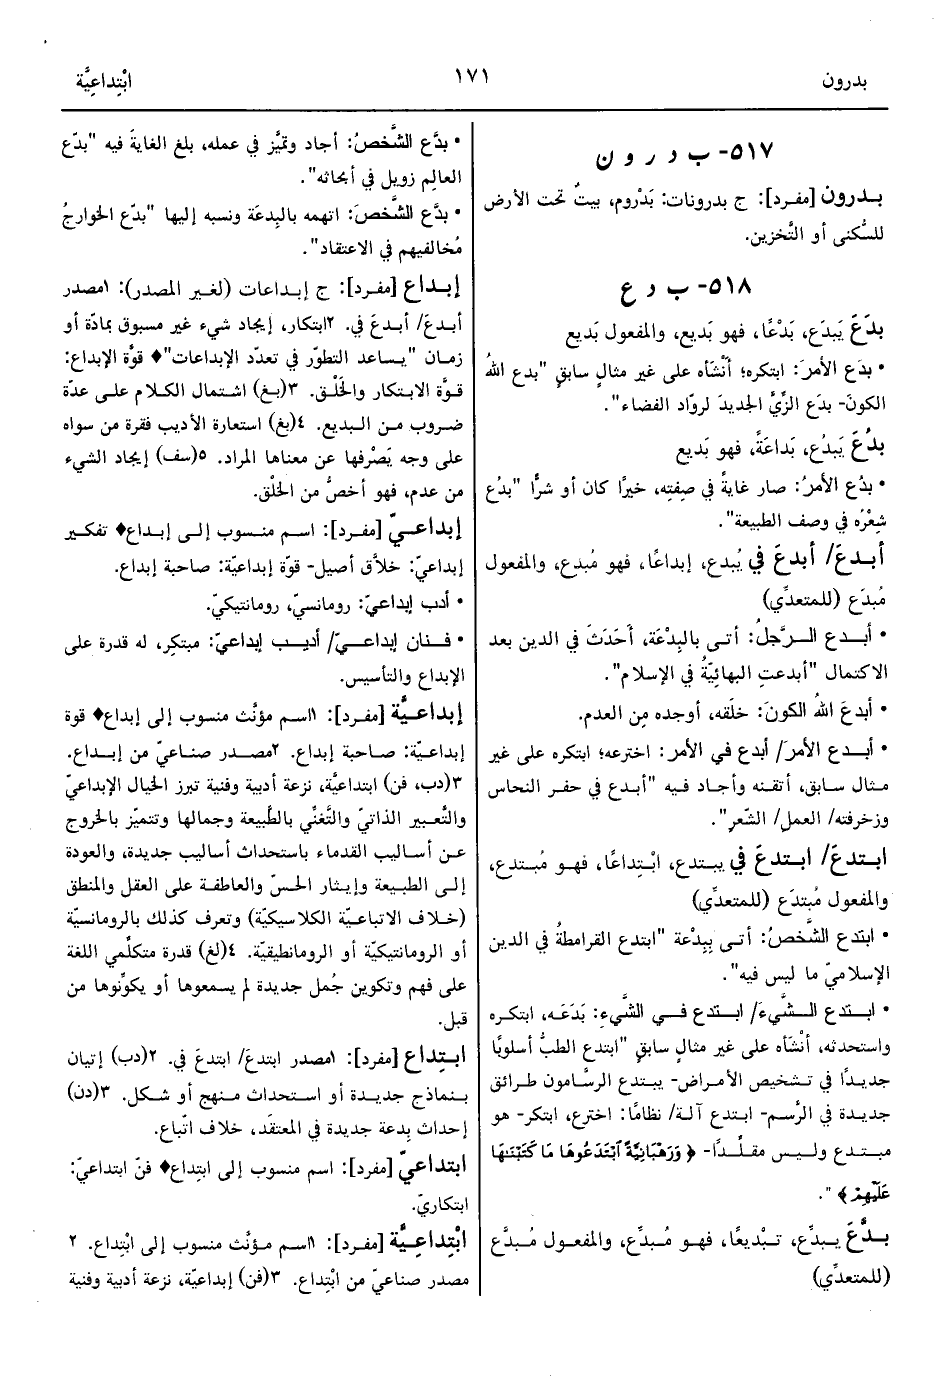 بدرون
١٧١
ابْتِداعِيَّة
٥١٧- ب د ر و ن
بدرون [مفرد]: ج بدرونات: بَدْروم، بيتٌ تحت الأرض
للسُّكنى أو التَّخزين.
٥١٨- ب د ع
بدَعَ يَبدَع، بَدْعًا، فهو بَديع، والمفعول بَديع
• بدَع الأمرَ: ابتكره؛ أنْشَأه على غير مثالٍ سابقٍ "بدع اللهُ
الكونَ- بدَع الزِّيَّ الجديدَ لروّاد الفضاء".
بدُعَ يَبدُع، بَداعَةً، فهو بَديع
• بدُع الأمرُ: صار غايةً في صِفتِه، خيرًا كان أو شرًّا "بدُع
شِعْرُه في وصف الطبيعة".
أبدعَ/ أبدعَ في يُبدع، إبداعًا، فهو مُبدع، والمفعول
مُبدَع (للمتعدِّي)
• أبـدع الـرَّجلُ: أتـى بالبِدْعَة، أَحْدَثَ في الدين بعد
الاكتمال "أبدعتِ البهائيّةُ في الإسلام".
• أبدعَ اللهُ الكونَ: خلَقه، أوجده مِن العدم.
• أبـدع الأمرَ/ أبدع في الأمر: اخترعه؛ ابتكره على غير
مثال سابق، أتقنه وأجاد فيه "أبدع في حفر النحاس
وزخرفته/ العمل/ الشّعر".
ابـتدعَ/ ابـتدعَ في يبتدع، ابْتِداعًا، فهـو مُبـتدع،
والمفعول مُبتدَع (للمتعدِّي)
• ابتدع الشَّخصُ: أتـى بِبِدْعة "ابتدع القرامطةُ في الدين
الإسلاميّ ما ليس فيه".
• ابـتدع الـشَّيءَ/ ابـتدع فـي الشَّيءِ: بَدَعَه، ابتكره
واستحدثه، أنْشَأه على غير مثالٍ سابقٍ "ابتدع الطبُّ أسلوبًا
جديدًا في تشخيص الأمراض- يبتدع الرسَّامون طرائق
جديدة في الرَّسم- ابتدع آلة/ نظامًا: اخترع، ابتكر- هو
مبـتدع ولـيس مقلِّـدًا- ﴿ وَرَهْبَانِيَّةً ٱبْتَدَعُوهَا مَا كَتَبْنَـٰهَا
عَلَيْهِمْ ﴾ ".
بـدَّعَ يـبدِّع، تـبْديعًا، فهـو مُـبدِّع، والمفعول مُـبدَّع
(للمتعدِّي)
• بدَّع الشَّخصُ: أجاد وتميَّز في عمله، بلغ الغايةَ فيه "بدّع
العالِم زويل في أبحاثه".
• بدَّع الشَّخصَ: اتهمه بالبِدعَة ونسبه إليها "بدّع الخوارجُ
مُخالفيهم في الاعتقاد".
إبـداع [مفرد]: ج إبـداعات (لغـير المصدر): ١مصدر
أبـدعَ/ أبـدعَ في. ٢ابتكار، إيجاد شيء غير مسبوق بمادّة أو
زمان "يساعد التطوّر في تعدّد الإبداعات" ♦ قوَّة الإبداع:
قـوَّة الابـتكار والخَلْق. ٣(بغ) اشـتمال الكـلام علـى عدّة
ضروب مـن الـبديع. ٤(بغ) استعارة الأديب فقرة من سواه
على وجه يَصْرفها عن معناها المراد. ٥(سف) إيجاد الشيء
من عدم، فهو أخصُّ من الخَلْق.
إبداعـيّ [مفـرد]: اسـم منـسوب إلـى إبـداع ♦ تفكـير
إبداعيّ: خلاَّق أصيل- قوّة إبداعيّة: صاحبة إبداع.
• أدب إبداعيّ: رومانسيّ، رومانتيكيّ.
• فـنان إبداعـيّ/ أديـب إبداعيّ: مبتكِر، له قدرة على
الإبداع والتأسيس.
إبداعـيَّة [مفرد]: ١اسـم مؤنَّث منسوب إلى إبداع ♦ قوة
إبداعـيّة: صـاحبة إبداع. ٢مصـدر صناعيّ من إبـداع.
٣(دب، فن) ابتداعيَّة، نزعة أدبية وفنية تبرز الخيال الإبداعيّ
والتَّعبير الذاتيّ والتَّغنّي بالطَّبيعة وجمالها وتتميّز بالخروج
عـن أسـاليب القدمـاء باستحداث أساليب جديدة، والعودة
إلـى الطبيعة وإيثار الحسّ والعاطفة على العقل والمنطق
(خـلاف الاتباعـيّة الكلاسيكيّة) وتعرف كذلك بالرومانسيّة
أو الرومانتيكيّة أو الرومانطيقيّة. ٤(لغ) قدرة متكلّمي اللغة
على فهم وتكوين جُمل جديدة لم يسمعوها أو يكوِّنوها من
قبل.
ابـتِداع [مفرد]: ١مصدر ابتدعَ/ ابتدعَ في. ٢(دب) إتيان
بـنماذج جديدة أو استحداث مـنهج أو شـكل. ٣(دن)
إحداث بِدعة جديدة في المعتقَد، خلاف اتّباع.
ابتداعيّ [مفرد]: اسم منسوب إلى ابتِداع ♦ فنّ ابتداعيّ:
ابتكاريّ.
ابْتِداعِيَّة [مفرد]: ١اسم مؤنَّث منسوب إلى ابْتِداع. ٢
مصدر صناعيّ من ابْتِداع. ٣(فن) إبداعيّة، نزعة أدبية وفنية